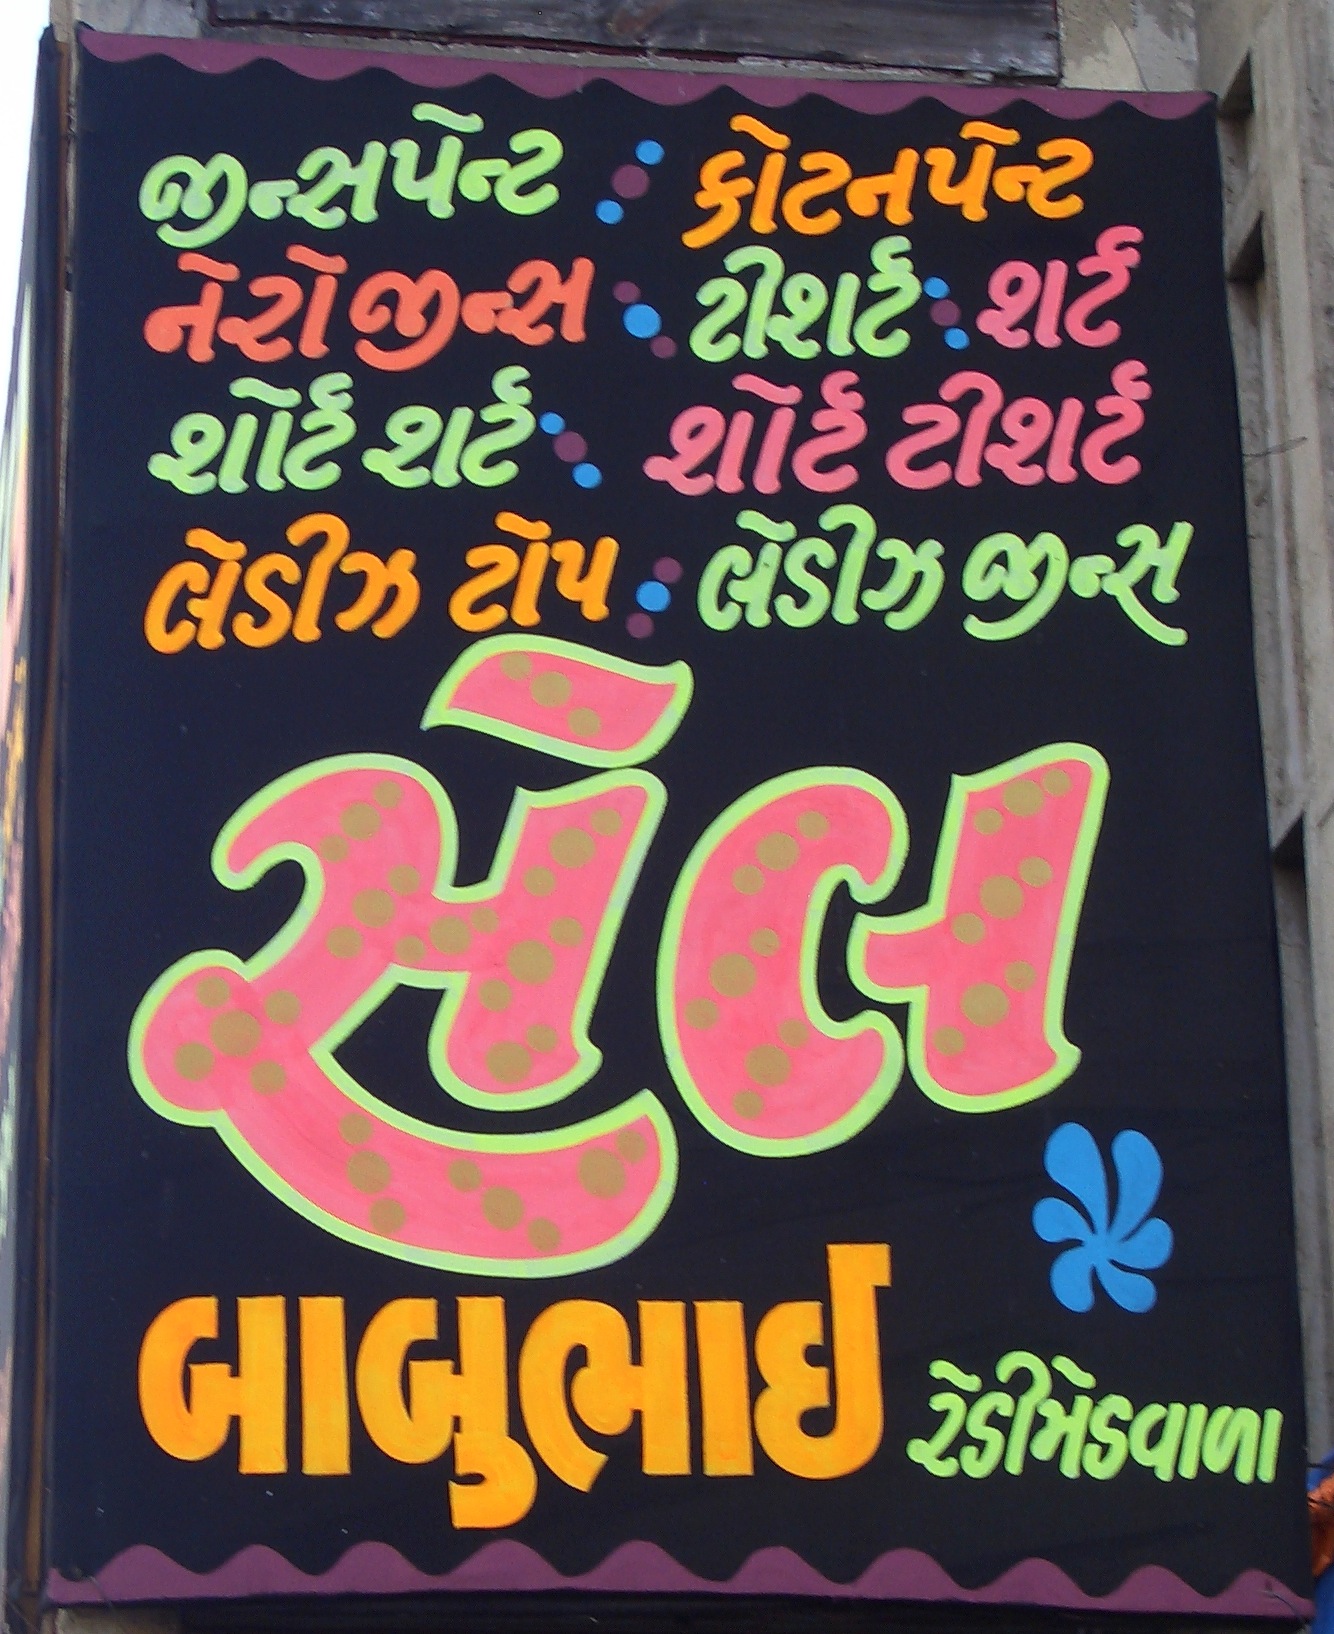 જીન્સપેન્ટ કોટનપેન્ટ
નેરો જીન્સ ટીશર્ટ શર્ટ
શોર્ટ શર્ટ શોર્ટ ટીશર્ટ
લેડીઝ ટોપ લેડીઝ જીન્સ
સેલ
બાબુભાઈ રેડીમેડવાળા